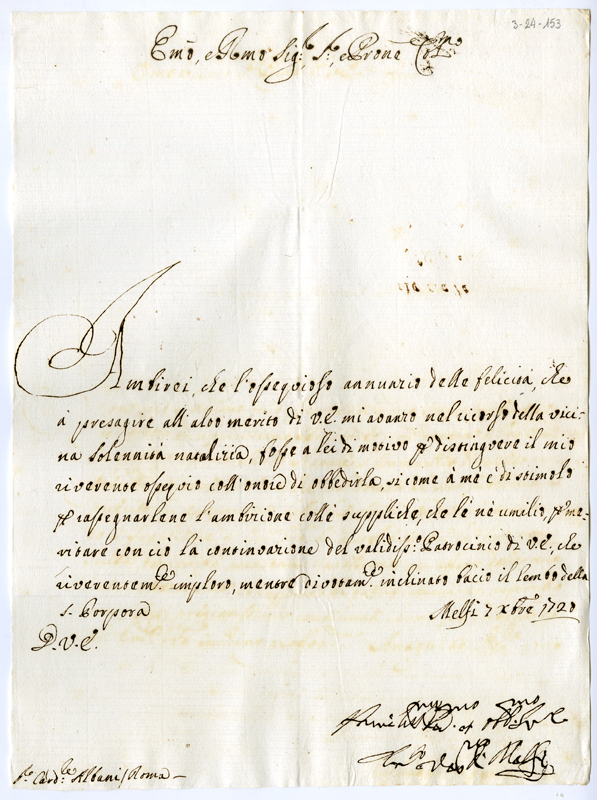 3-24-153
Emo, e Rmo Sig.r S.r, e Prone Colmo
Ambirei, che l'ossequioso annunzio delle felicità, che
à presagire all'alto merito di V.E. mi avanzo nel ricorso della vici-
na solennità natalizia, fosse a lei di motivo p distinguere il mio
riverente ossequio coll'onore di obbedirla, si come à mè è di stimolo
p rassegnarlene l'ambizione colle suppliche, che le nè umilio, p me-
ritare con ciò la continuazione del validiss.o Patrocinio di V.E., che
riverentem.te imploro, mentre divotam.te inchinato bacio il lembo della
S. Porpora
Melfi 7 Xbre 1720
D.V.E.
S.r Card.le Albani / Roma